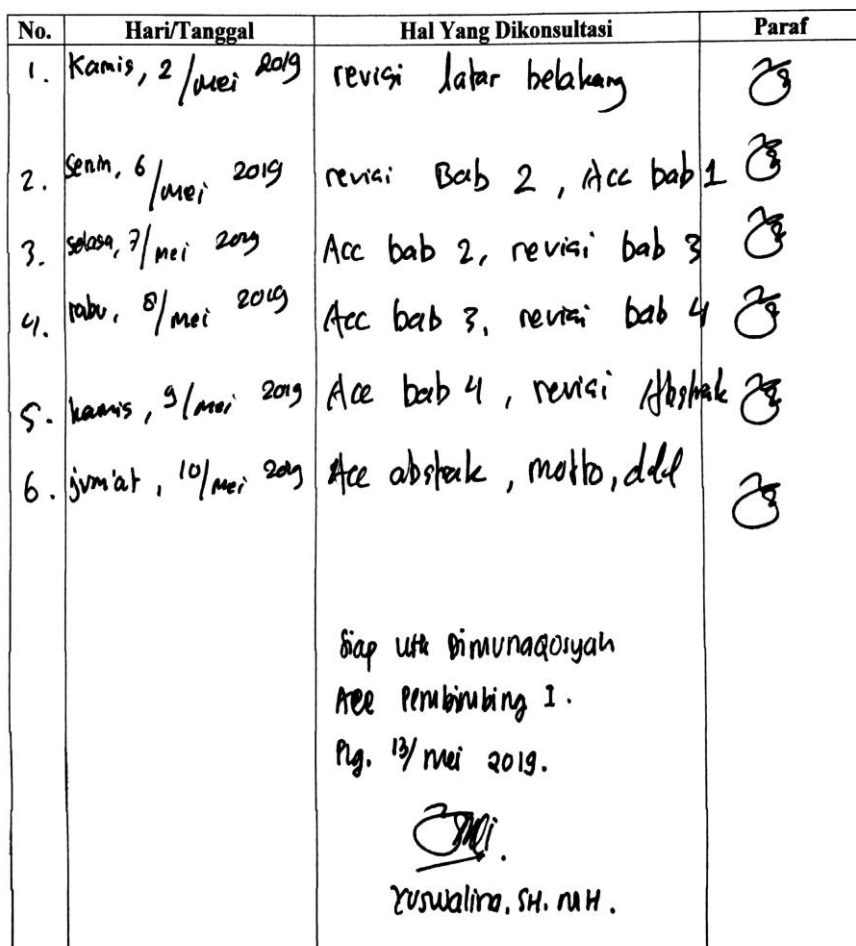 No. Hari/Tanggal Hal Yang Dikonsultasi Paraf
1. Kamis, 2/mei 2019 revisi latar belakang
2. Senin, 6/mei 2019 revisi Bab 2, Acc bab 1
3. selasa, 7/mei 2019 Acc bab 2, revisi bab 3
4. rabu, 8/mei 2019 Acc bab 3, revisi bab 4
5. kamis, 9/mei 2019 Acc bab 4, revisi Abstrak
6. jum'at, 10/mei 2019 Acc abstrak, motto, dll
Siap utk Dimunaqosyah
Acc Pembimbing I.
Plg. 13/mei 2019.
Yuswalina, SH. MH.